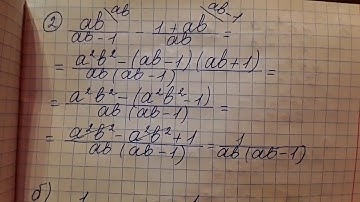 2) ab/(ab-1) \ab - (1+ab)/ab \ab-1 =
= (a²b² - (ab-1)(ab+1))/(ab(ab-1)) =
= (a²b² - (a²b²-1))/(ab(ab-1)) =
= (a²b² - a²b² + 1)/(ab(ab-1)) = 1/(ab(ab-1))
б)